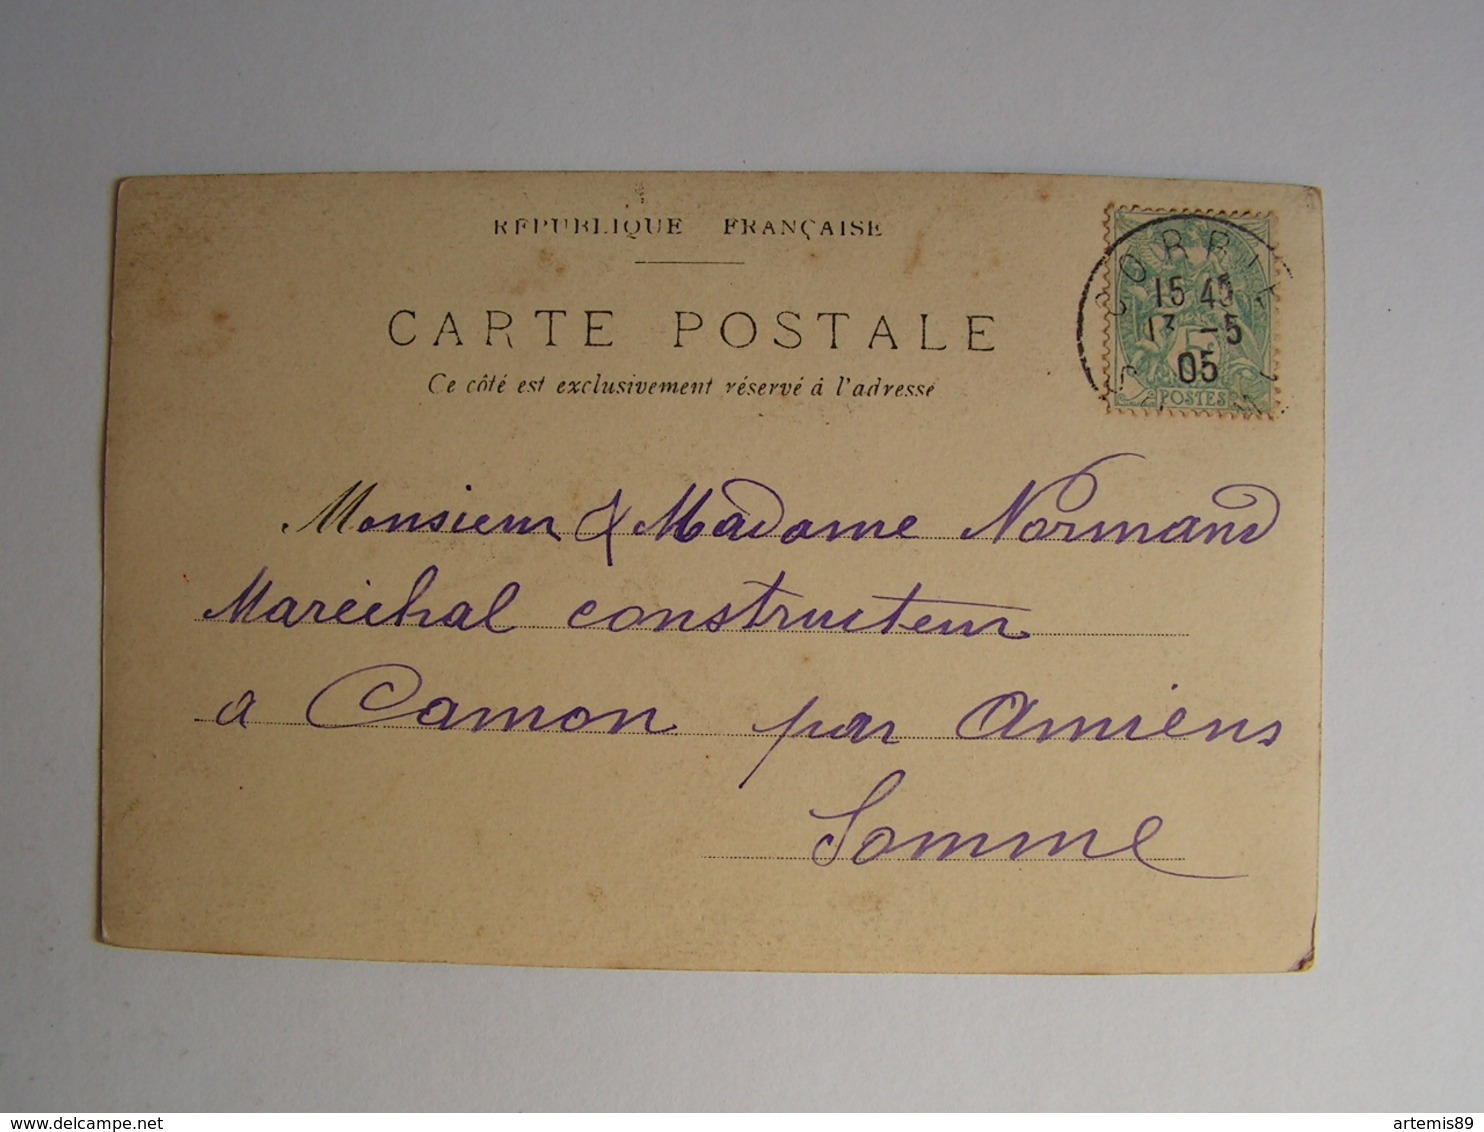 RÉPUBLIQUE FRANÇAISE
CARTE POSTALE
Ce côté est exclusivement réservé à l'adresse
CORBIE
15 45
13 -5
05
POSTES
Monsieur & Madame Normand
Maréchal constructeur
a Camon par Amiens
Somme
artemis89